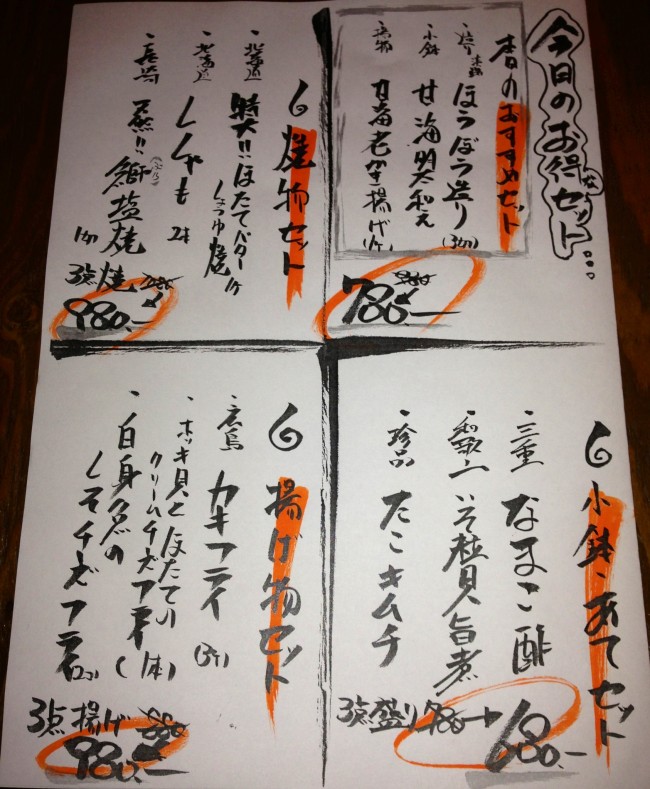 今日のお得なセット…
春のおすすめセット
ほうぼう造り
小鉢 甘海明太和え
甘海老かき揚げ
780.—
焼物セット
・北海道 特大!!ほたてバター
しょうゆ焼
・北海道 ししゃも 2本
・長崎 鰤塩焼
3点焼
980.—
小鉢・あてセット
・三重 なまこ酢
・和歌山 いそ柱貝旨煮
・珍品 たこキムチ
3点盛り 780 → 680.—
揚げ物セット
・広島 カキフライ
・ホッキ貝とほたての
クリームチーズフライ (1本)
・白身魚の
しそチーズフライ
3点揚げ
980.—